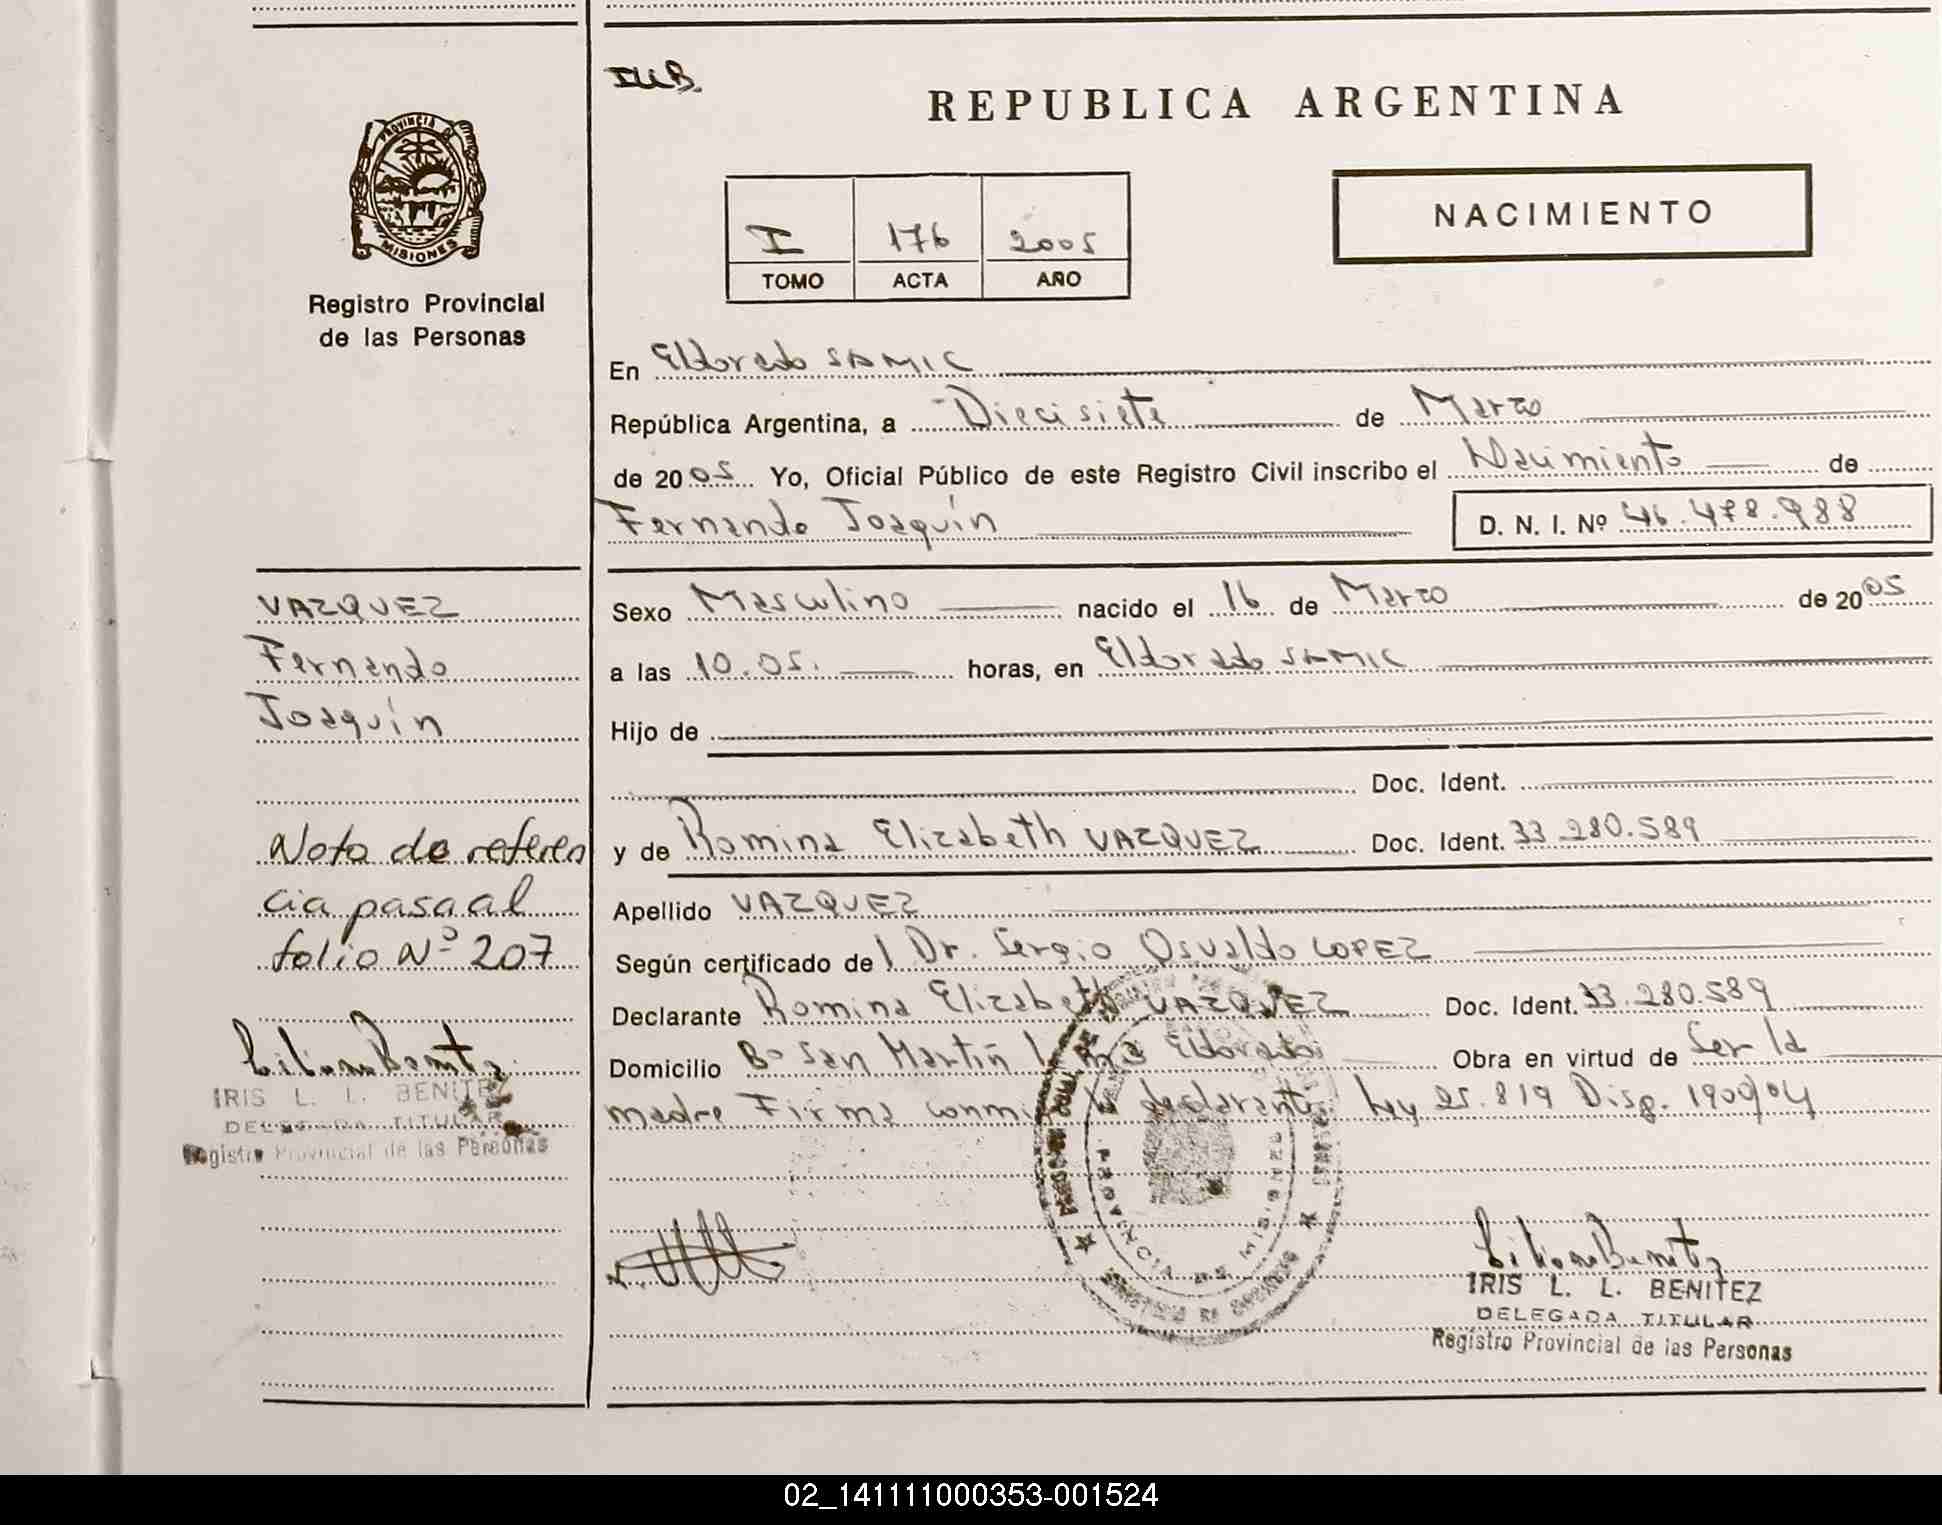 PROVINCIA DE
MISIONES
Registro Provincial
de las Personas
REPUBLICA ARGENTINA
NACIMIENTO
I 176 2005
TOMO ACTA AÑO
En Eldorado SAMIC
República Argentina, a Diecisiete de Marzo
de 2005 Yo, Oficial Público de este Registro Civil inscribo el Nacimiento de
Fernando Joaquín D. N. I. Nº 46.478.988
Sexo Masculino nacido el 16 de Marzo de 2005
a las 10.05. horas, en Eldorado SAMIC
Hijo de
Doc. Ident.
y de Romina Elizabeth VAZQUEZ Doc. Ident. 33.280.589
Apellido VAZQUEZ
Según certificado del Dr. Sergio Osvaldo LOPEZ
Declarante Romina Elizabeth VAZQUEZ Doc. Ident. 33.280.589
Domicilio Bº San Martín Eldorado Obra en virtud de Ser la
madre Firma declarante Ley 25.819 Disp. 1900/04
VAZQUEZ
Fernando
Joaquín
Nota de referen
cia pasa al
folio Nº 207
IRIS L. L. BENITEZ
DELEGADA TITULAR
Registro Provincial de las Personas
PROVINCIA DE MISIONES
IRIS L. L. BENITEZ
DELEGADA TITULAR
Registro Provincial de las Personas
02_141111000353-001524